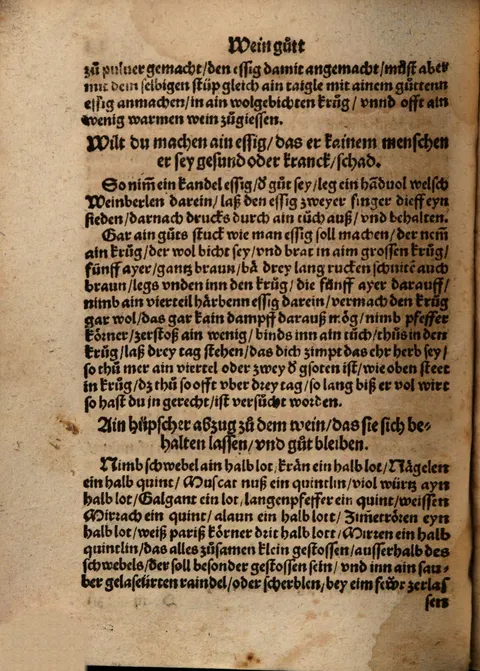 Wein gůtt
zů puluer gemacht/den essig damit angemacht/můst aber
mit dem selbigen stüp gleich ain taigle mit ainem güttenn
essig anmachen/in ain wolgebichten krůg/ vnnd offt ain
wenig warmen wein zůgiessen.
Wilt du machen ain essig/das er kainem menschen
er sey gesund oder kranck/schad.
So nim̃ ein kandel essig/ď gůt sey/leg ein hãduol welsch
Weinberlen darein/laß den essig zweyer finger dieff eyn
sieden/darnach drucks durch ain tůch auß/vnd behalten.
Gar ain gůts stuck wie man essig soll machen/der nem̃
ain krůg/der wol bicht sey/vnd brat in aim grossen krůg/
fünff ayer/gantz braun/bä drey lang rucken schnitẽ auch
braun/legs vnden inn den krůg/die fünff ayer darauff/
nimb ain vierteil härbenn essig darein/vermach den krůg
gar wol/das gar kain dampff darauß mög/nimb pfeffer
körner/zerstoß ain wenig/binds inn ain tůch/thůs in den
krůg/laß drey tag stehen/das dich zimpt das ehr herb sey/
so thů mer ain viertel oder zwey ď gsoten ist/wie oben steet
in krůg/dz thů so offt vber drey tag/so lang biß er vol wirt
so hast du in gerecht/ist versůcht worden.
Ain hüpscher abzug zů dem wein/das sie sich be-
halten lassen/vnd gůt bleiben.
Nimb schwebel ain halb lot/krän ein halb lot/Nägelen
ein halb quint/Muscat nuß ein quintlin/viol würtz ayn
halb lot/Galgant ein lot/langenpfeffer ein quint/weissen
Mirrach ein quint/alaun ein halb lott/Zim̃etrören eyn
halb lot/weiß pariß körner drit halb lott/Mirren ein halb
quintlin/das alles zůsamen klein gestossen/ausserhalb des
schwebels/der soll besonder gestossen sein/vnd inn ain sau-
ber gelasürten raindel/oder scherblen/bey eim fewr zerlas
sen